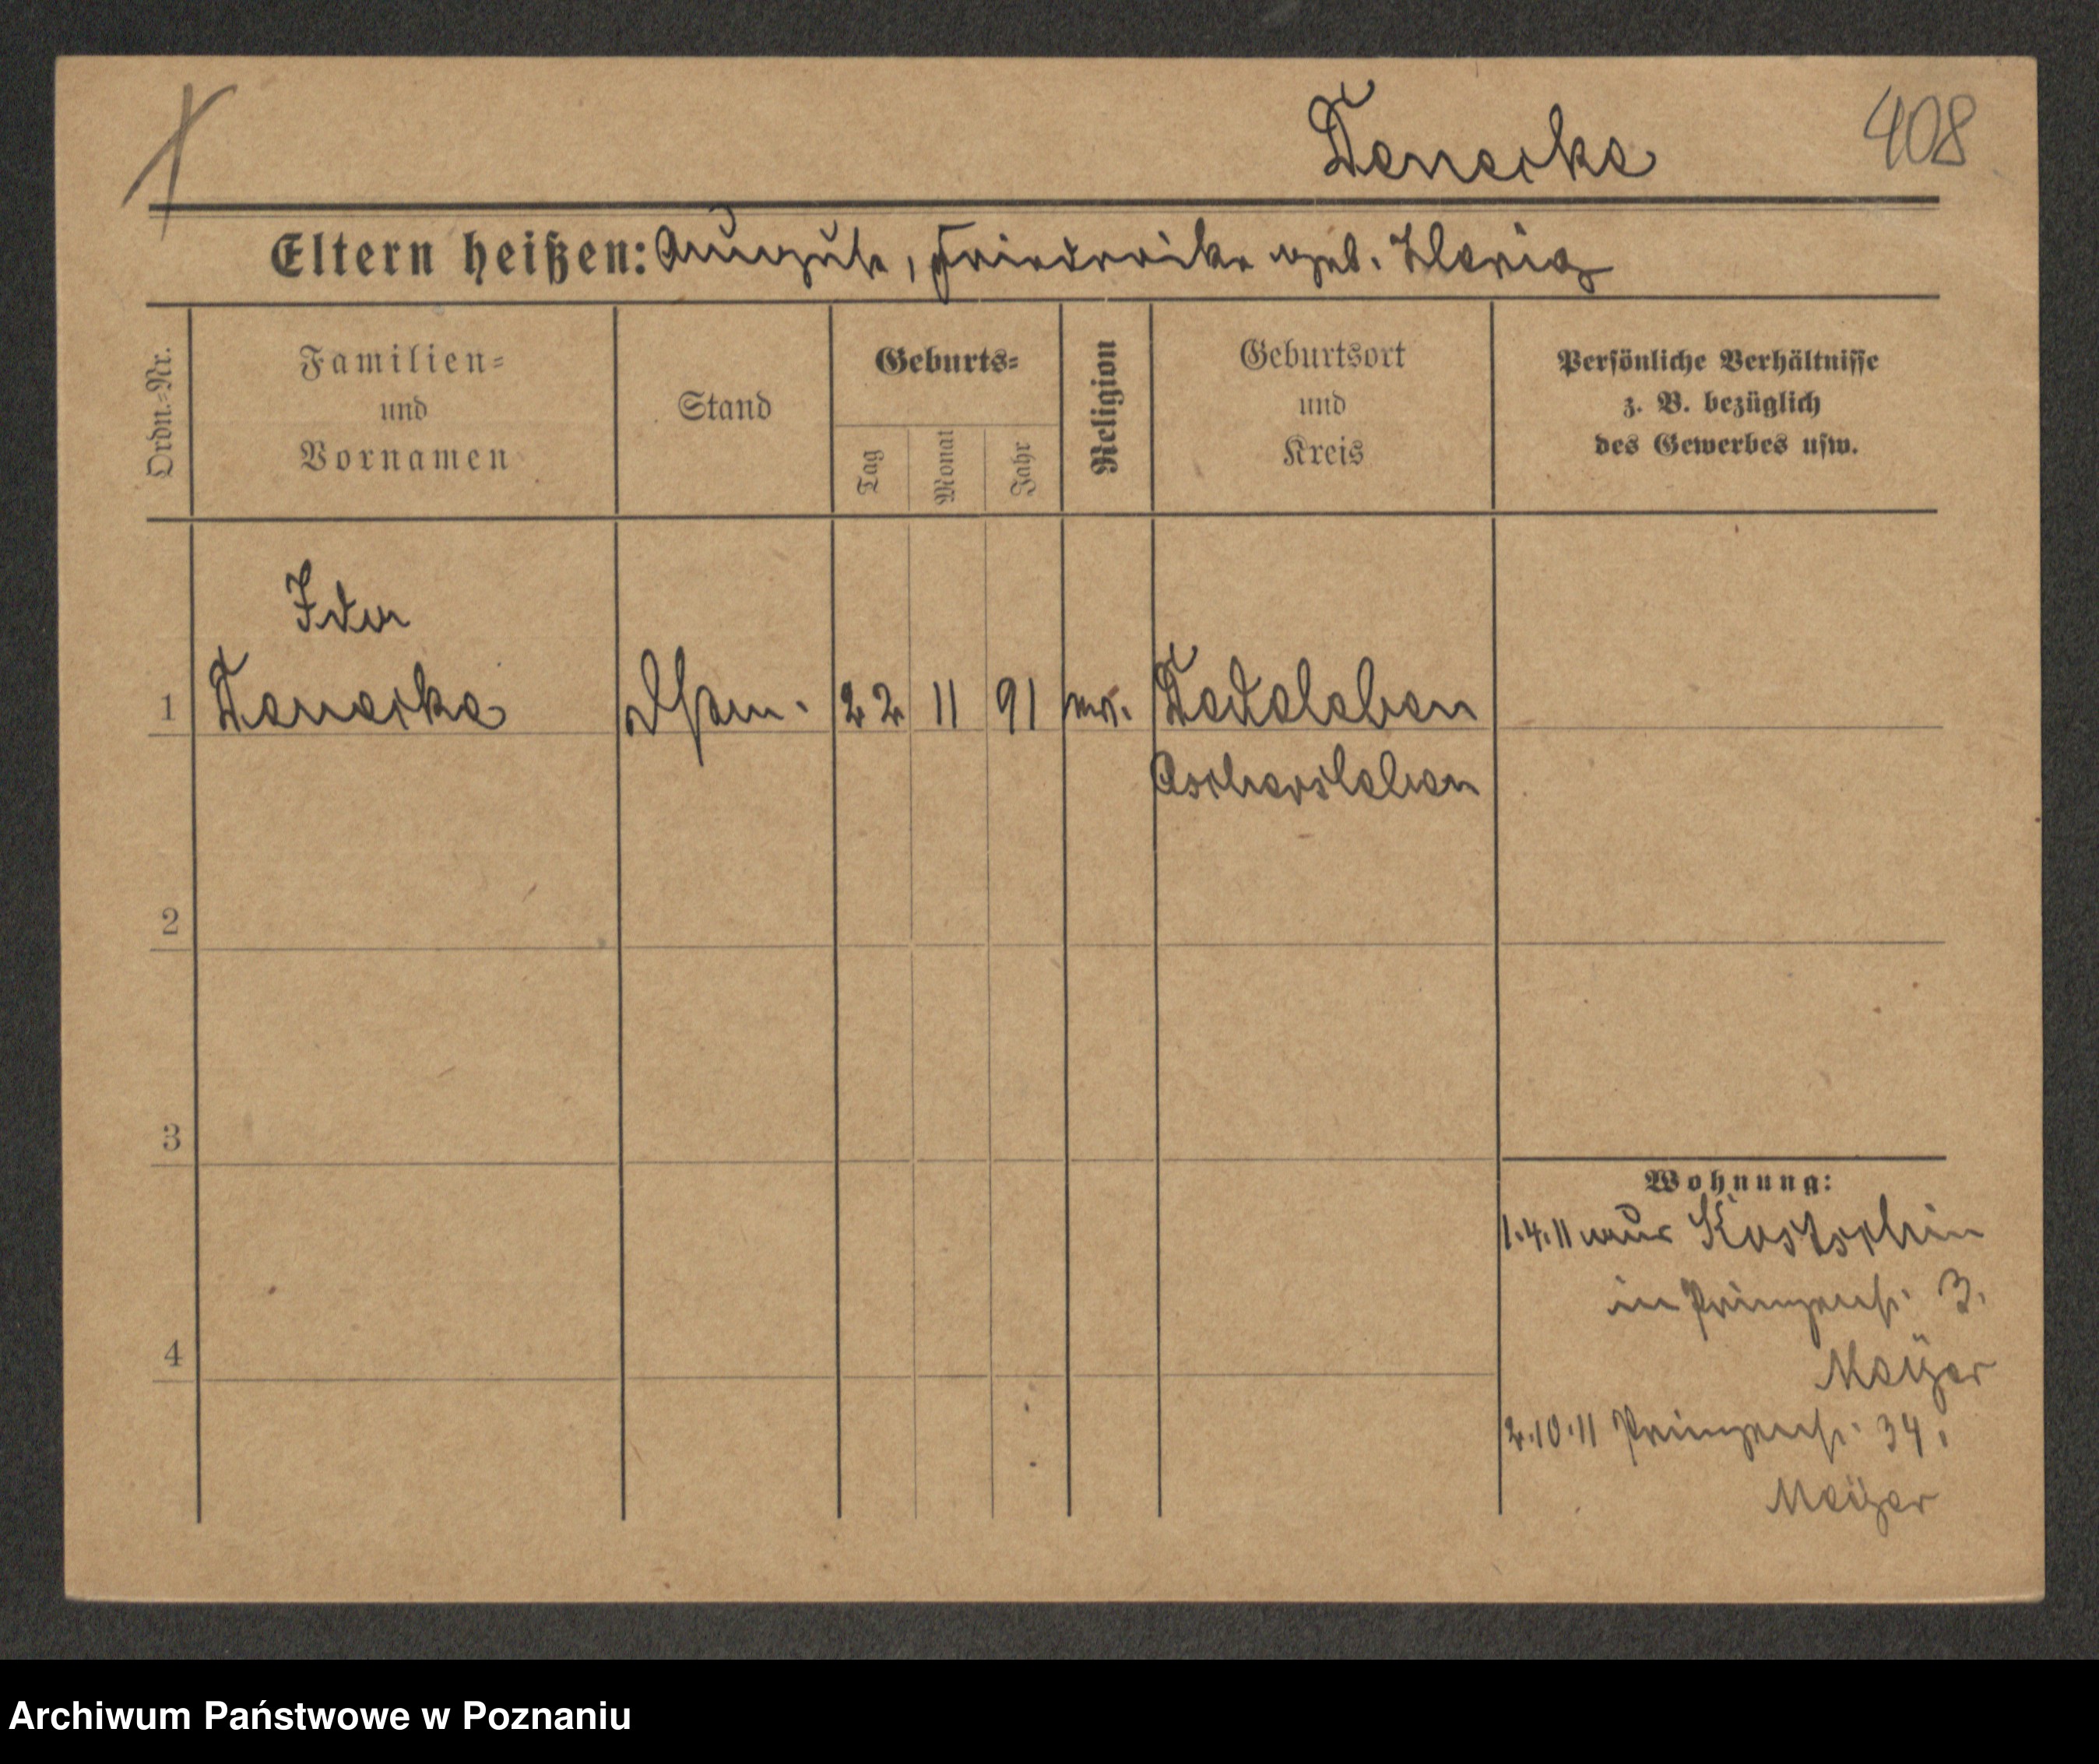 Denecke
408
Eltern heißen: August, Friedericke geb. Illerig
Ordn.=Nr.
Familien=
und
Vornamen
Stand
Geburts=
Tag
Monat
Jahr
Religion
Geburtsort
und
Kreis
Persönliche Verhältnisse
z. B. bezüglich
des Gewerbes usw.
Ida
1 Denecke 22 11 91 ev. Dedeleben
Aschersleben
2
3
4
Wohnung:
1.4.11 aus Kostschin
in Prinzenst. 3.
Meÿer
2.10.11 Prinzenst. 34.
Meÿer
Archiwum Państwowe w Poznaniu